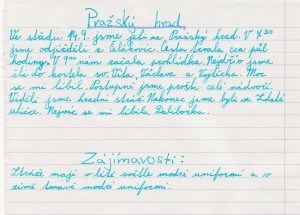 Pražský hrad
Ve středu 14.9. jsme jeli na Pražský hrad. V 7 30
jsme odjížděli z Čelákovic. Cesta trvala cca půl
hodiny. V 9 00 nám začala prohlídka. Nejdřív jsme
šli do kostela sv. Víta, Václava a Vojtěcha. Moc
se mi líbil. Postupně jsme prošli celé nádvoří.
Viděli jsme hradní stráž. Nakonec jsme byli ve Zlaté
uličce. Nejvíc se mi líbila Daliborka.
Zajímavosti:
Stráže mají v létě světle modré uniformi a v
zimě tmavě modré uniformi.